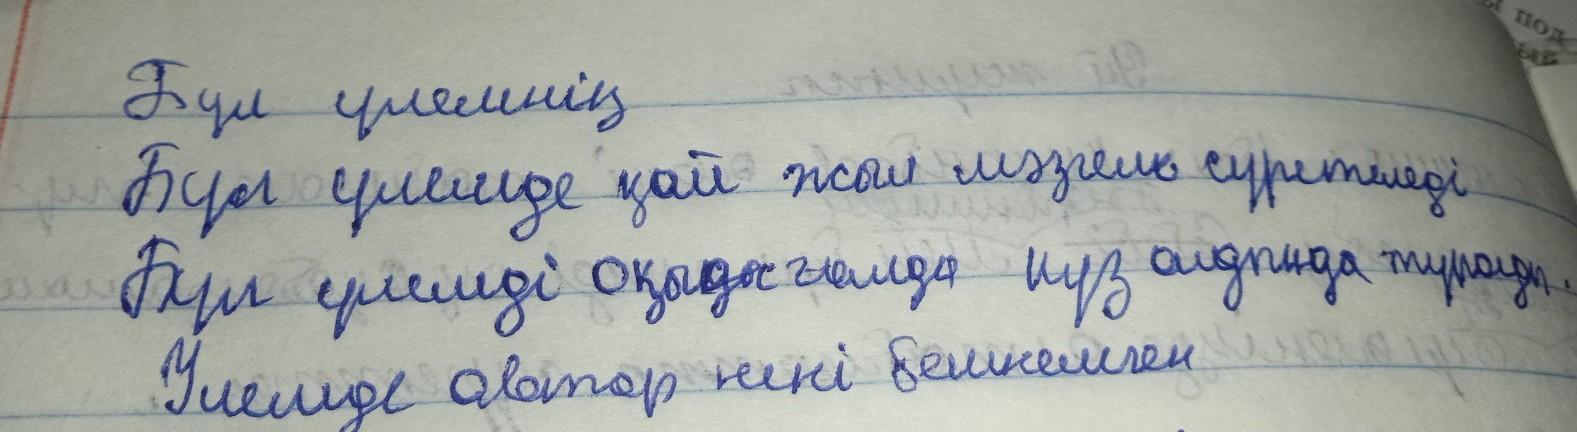 Бұл өлеңнің
Бұл өлеңде қай жыл мезгелі суреттеледі
Бұл өлеңді оқығанда күз алдында тұрады.
Өлеңде автор нені бейнелеген